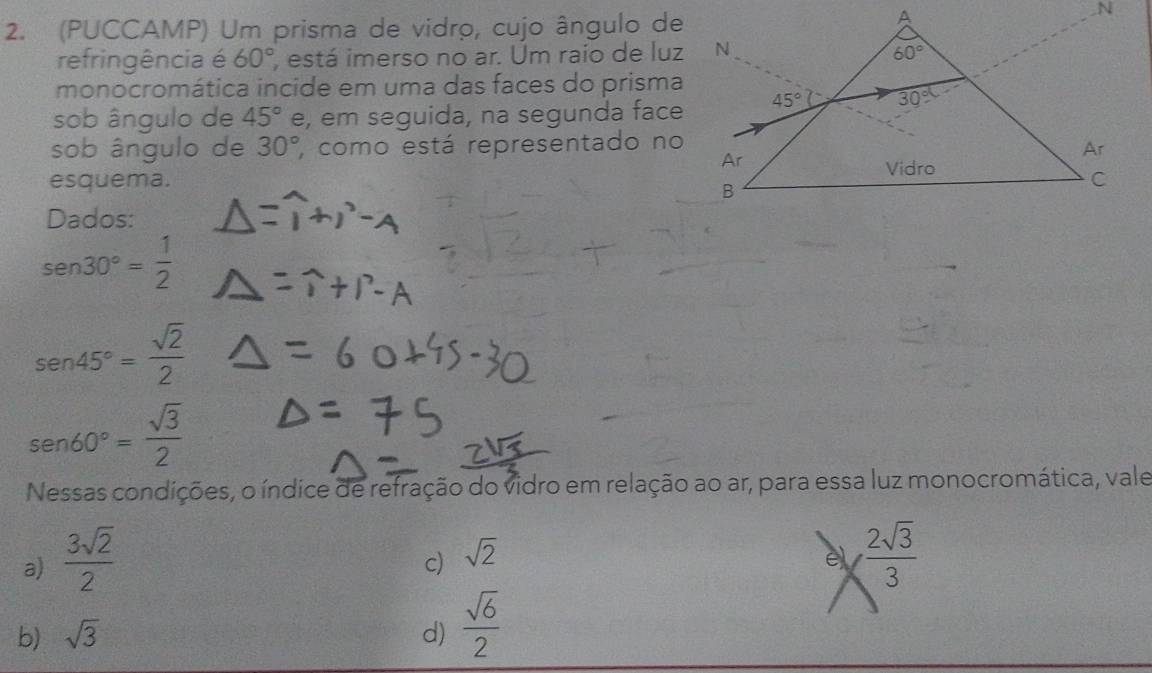 2. (PUCCAMP) Um prisma de vidro, cujo ângulo de
refringência é 60°, está imerso no ar. Um raio de luz
monocromática incide em uma das faces do prisma
sob ângulo de 45° e, em seguida, na segunda face
sob ângulo de 30°, como está representado no
esquema.
A
N
N
60°
45°
30°
Ar
Ar
Vidro
B
C
Dados:
sen30° = 1/2
sen45° = √2/2
sen60° = √3/2
Δ = î + i² - A
Δ = î + i² - A
Δ = 60+45-30
Δ = 75
Δ = 2√3/3
Nessas condições, o índice de refração do vidro em relação ao ar, para essa luz monocromática, vale
a) 3√2/2
c) √2
e) 2√3/3
b) √3
d) √6/2